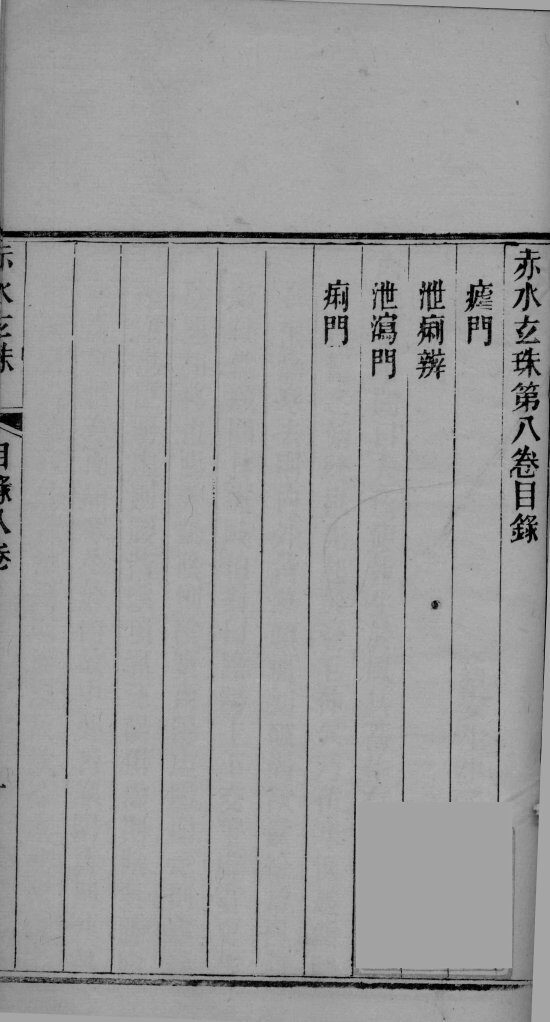 赤水玄珠第八卷目錄
瘧門
泄痢辨
泄瀉門
痢門
赤水玄珠
目錄八卷
一